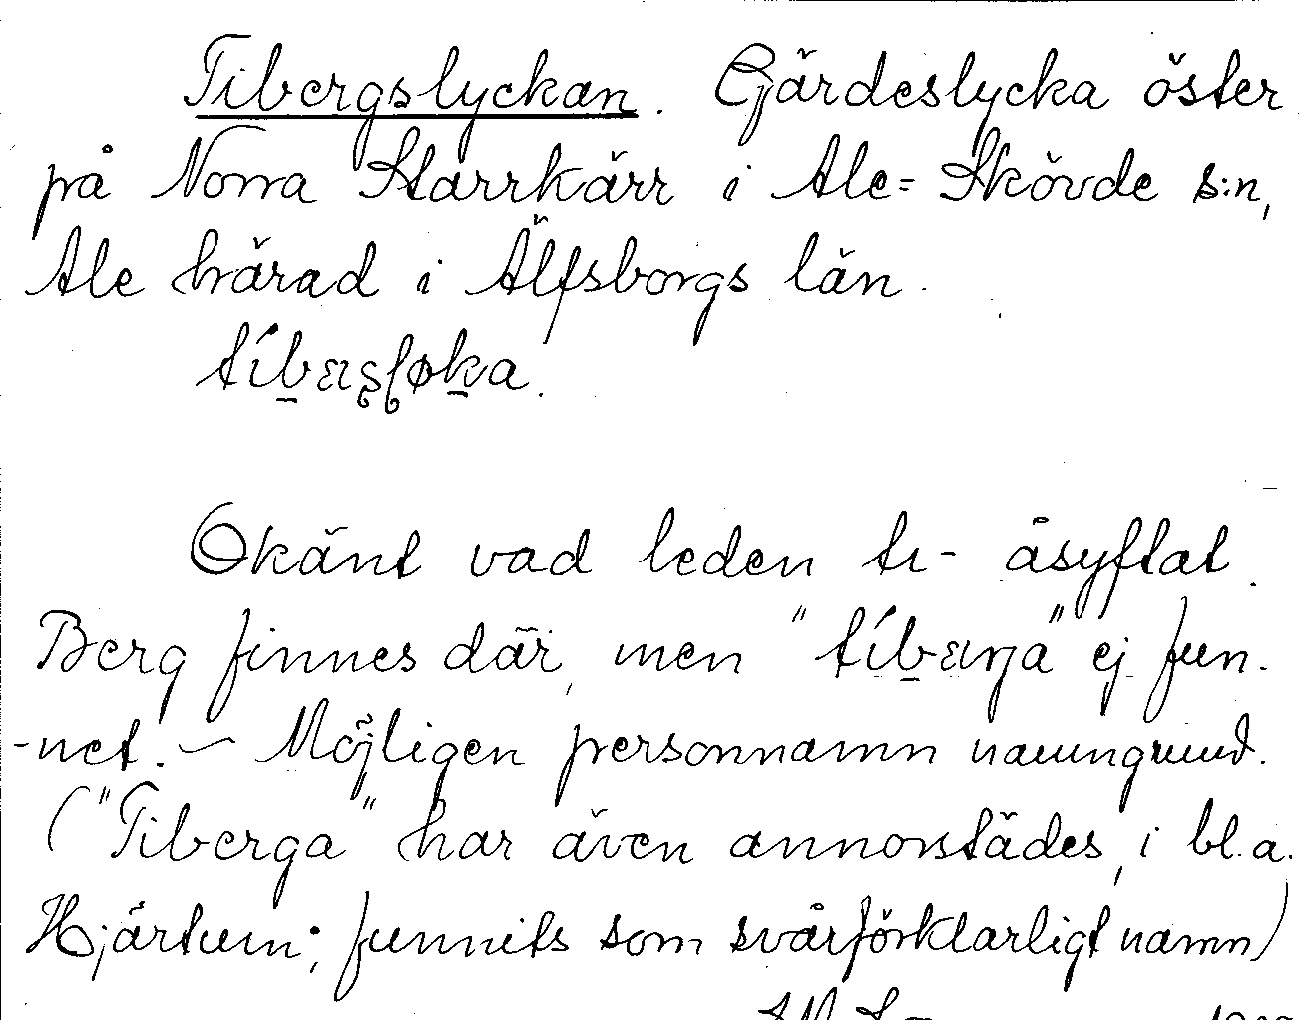 Tibergslyckan. Gärdeslycka öster
på Norra Starrkärr i Ale-Skövde s:n,
Ale härad i Älfsborgs län.
Okänt vad leden ti- åsyftat.
Berg finnes där, men " " ej fun-
-net. – Möjligen personnamn namngrund.
("Tiberga" har även annorstädes, i bl.a.
Hjärtum; funnits som svårförklarligt namn)